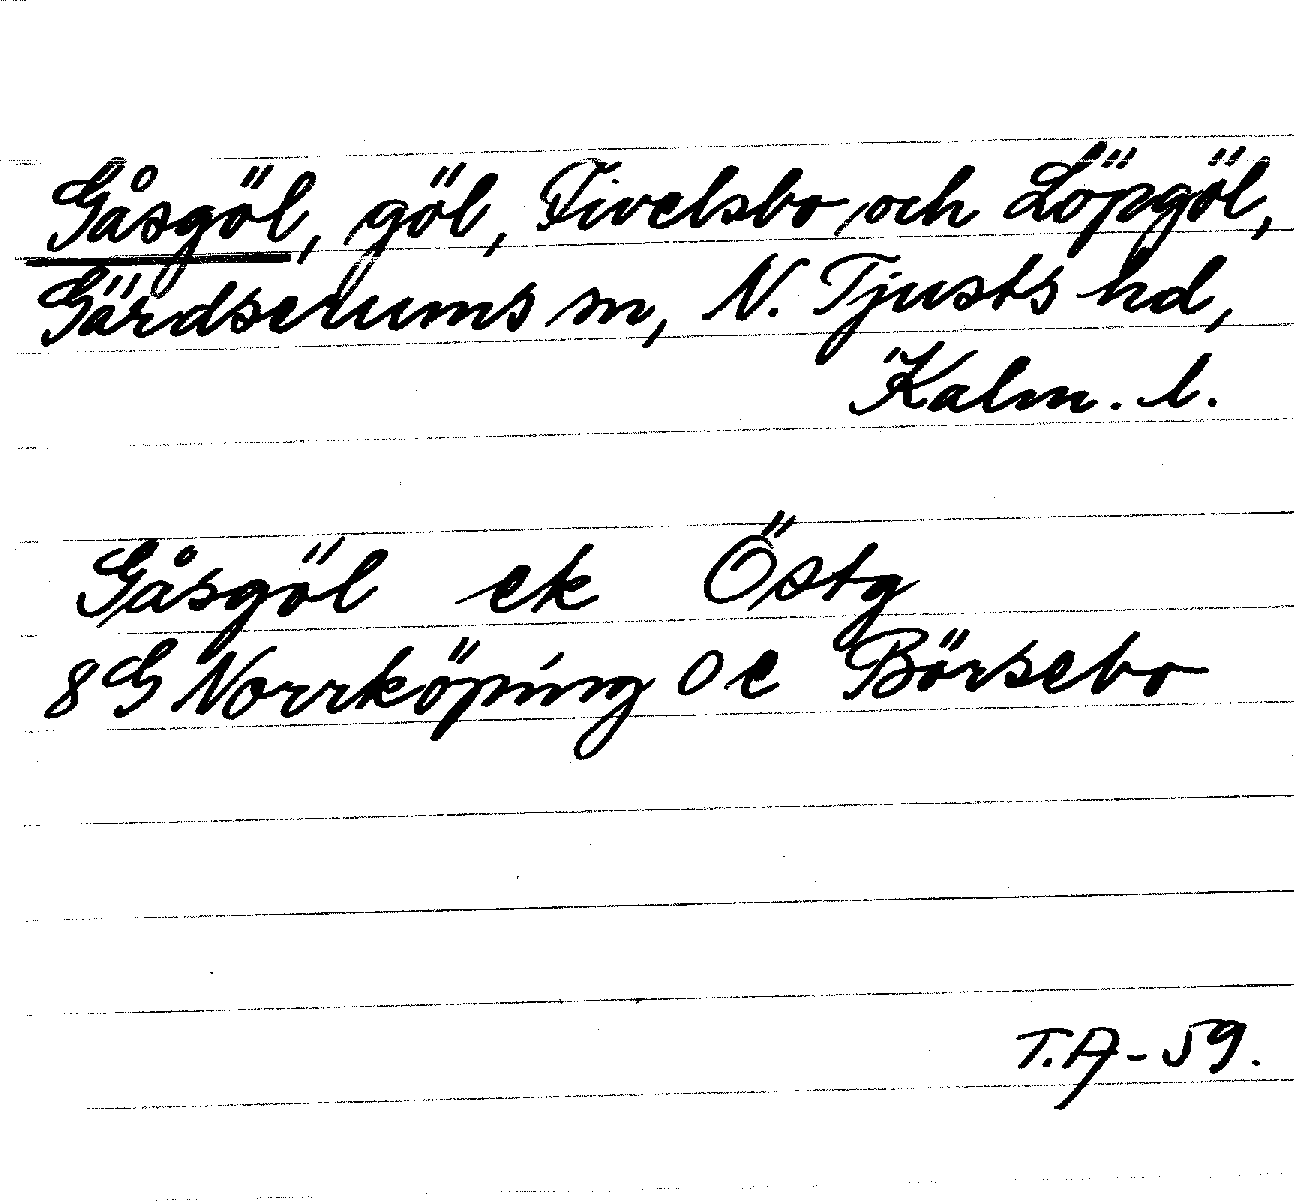 Gåsgöl, göl, Fivelsbo och Löpgöl,
Gärdserums sn, N. Tjusts hd,
Kalm. l.
Gåsgöl ek Östg
8G Norrköping 0e Börsebo
T.A-59.